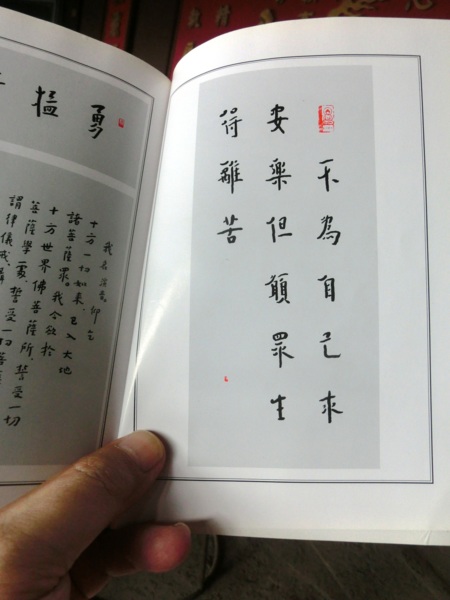 不為自己求
安樂但願眾生
得離苦
勇猛
十方一切如來已入大地
諸菩薩眾。我今欲於
十方世界佛菩薩所,誓受一切
菩薩學處,誓受一切菩
謂律儀戒